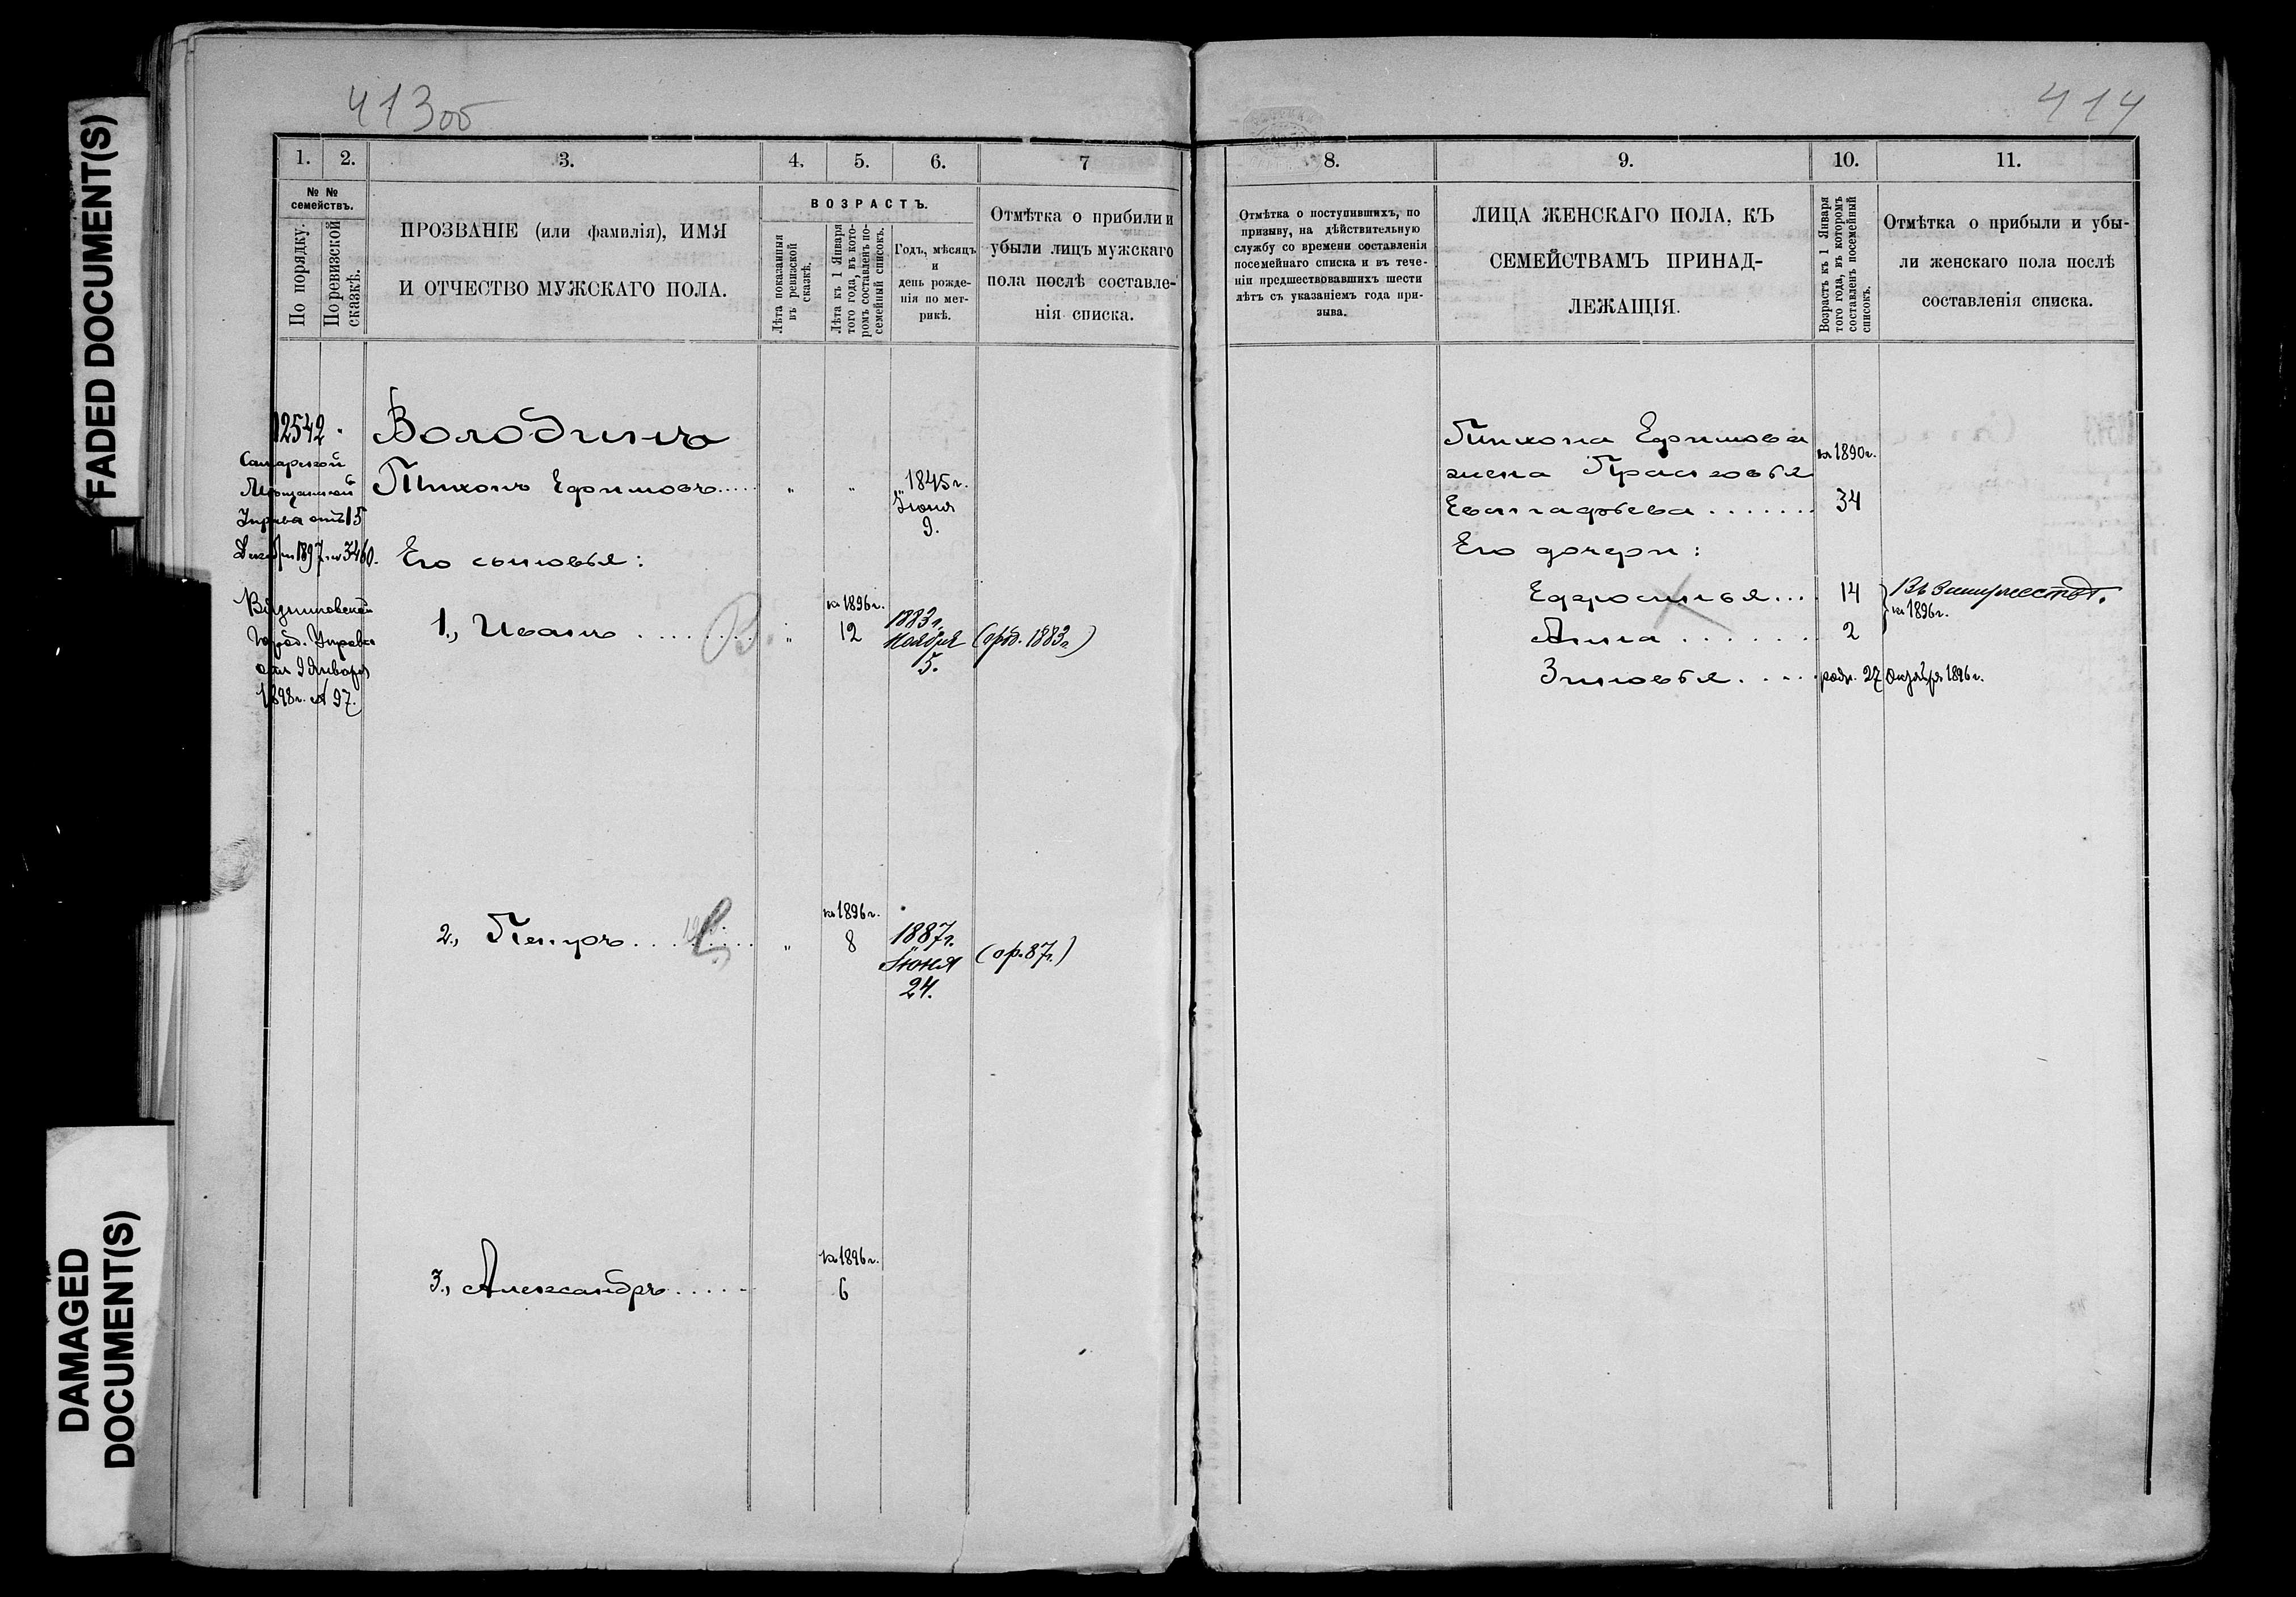 FADED DOCUMENT(S)
DAMAGED
DOCUMENT(S)
413об
1.
2.
3.
4.
5.
6.
7
№ №
семействъ.
По порядку.
По ревизской
сказкѣ.
ПРОЗВАНІЕ (или фамилія), ИМЯ
И ОТЧЕСТВО МУЖСКАГО ПОЛА.
ВОЗРАСТЪ.
Лѣта показанныя
въ ревизской
сказкѣ.
Лѣта къ 1 Января
того года, въ кото-
ромъ составленъ по-
семейный списокъ.
Годъ, мѣсяцъ
и
день рожде-
нія по мет-
рикѣ.
Отмѣтка о прибыли и
убыли лицъ мужскаго
пола послѣ составле-
нія списка.
12542.
Самарской
Мѣщанской
Управы отъ 15
Декабря 1897 № 3460.
Володинъ
Тихонъ Ефимовъ..... „ „ 1845 г.
Іюня
9.
Его сыновья:
Вязниковской
Город. Управы
отъ 9 Января
1898 г. № 97.
на 1896 г.
1., Иванъ ........ „ 12 1883 г.
Ноября
5.
(1883 г.)
В.
на 1896 г.
2., Петръ........ „ 8 1887 г.
Іюня
24.
(ор. 87 г.)
на 1896 г.
3., Александръ..... 6
414
8.
9.
10.
11.
Отмѣтка о поступившихъ, по
призыву, на дѣйствительную
службу со времени составленія
посемейнаго списка и въ тече-
ніи предшествовавшихъ шести
лѣтъ съ указаніемъ года при-
зыва.
ЛИЦА ЖЕНСКАГО ПОЛА, КЪ
СЕМЕЙСТВАМЪ ПРИНАД-
ЛЕЖАЩІЯ.
Возрастъ къ 1 Января
того года, въ которомъ
составленъ посемейный
списокъ.
Отмѣтка о прибыли и убы-
ли женскаго пола послѣ
составленія списка.
Тихона Ефимова
жена Прасковья на 1890 г.
Евстафьева ....... 34
Его дочери:
Ефросинья.... 14 Въ замужествѣ.
на 1896 г.
Анна ....... 2
Зиновья..... родл. 27 Октября 1896 г.